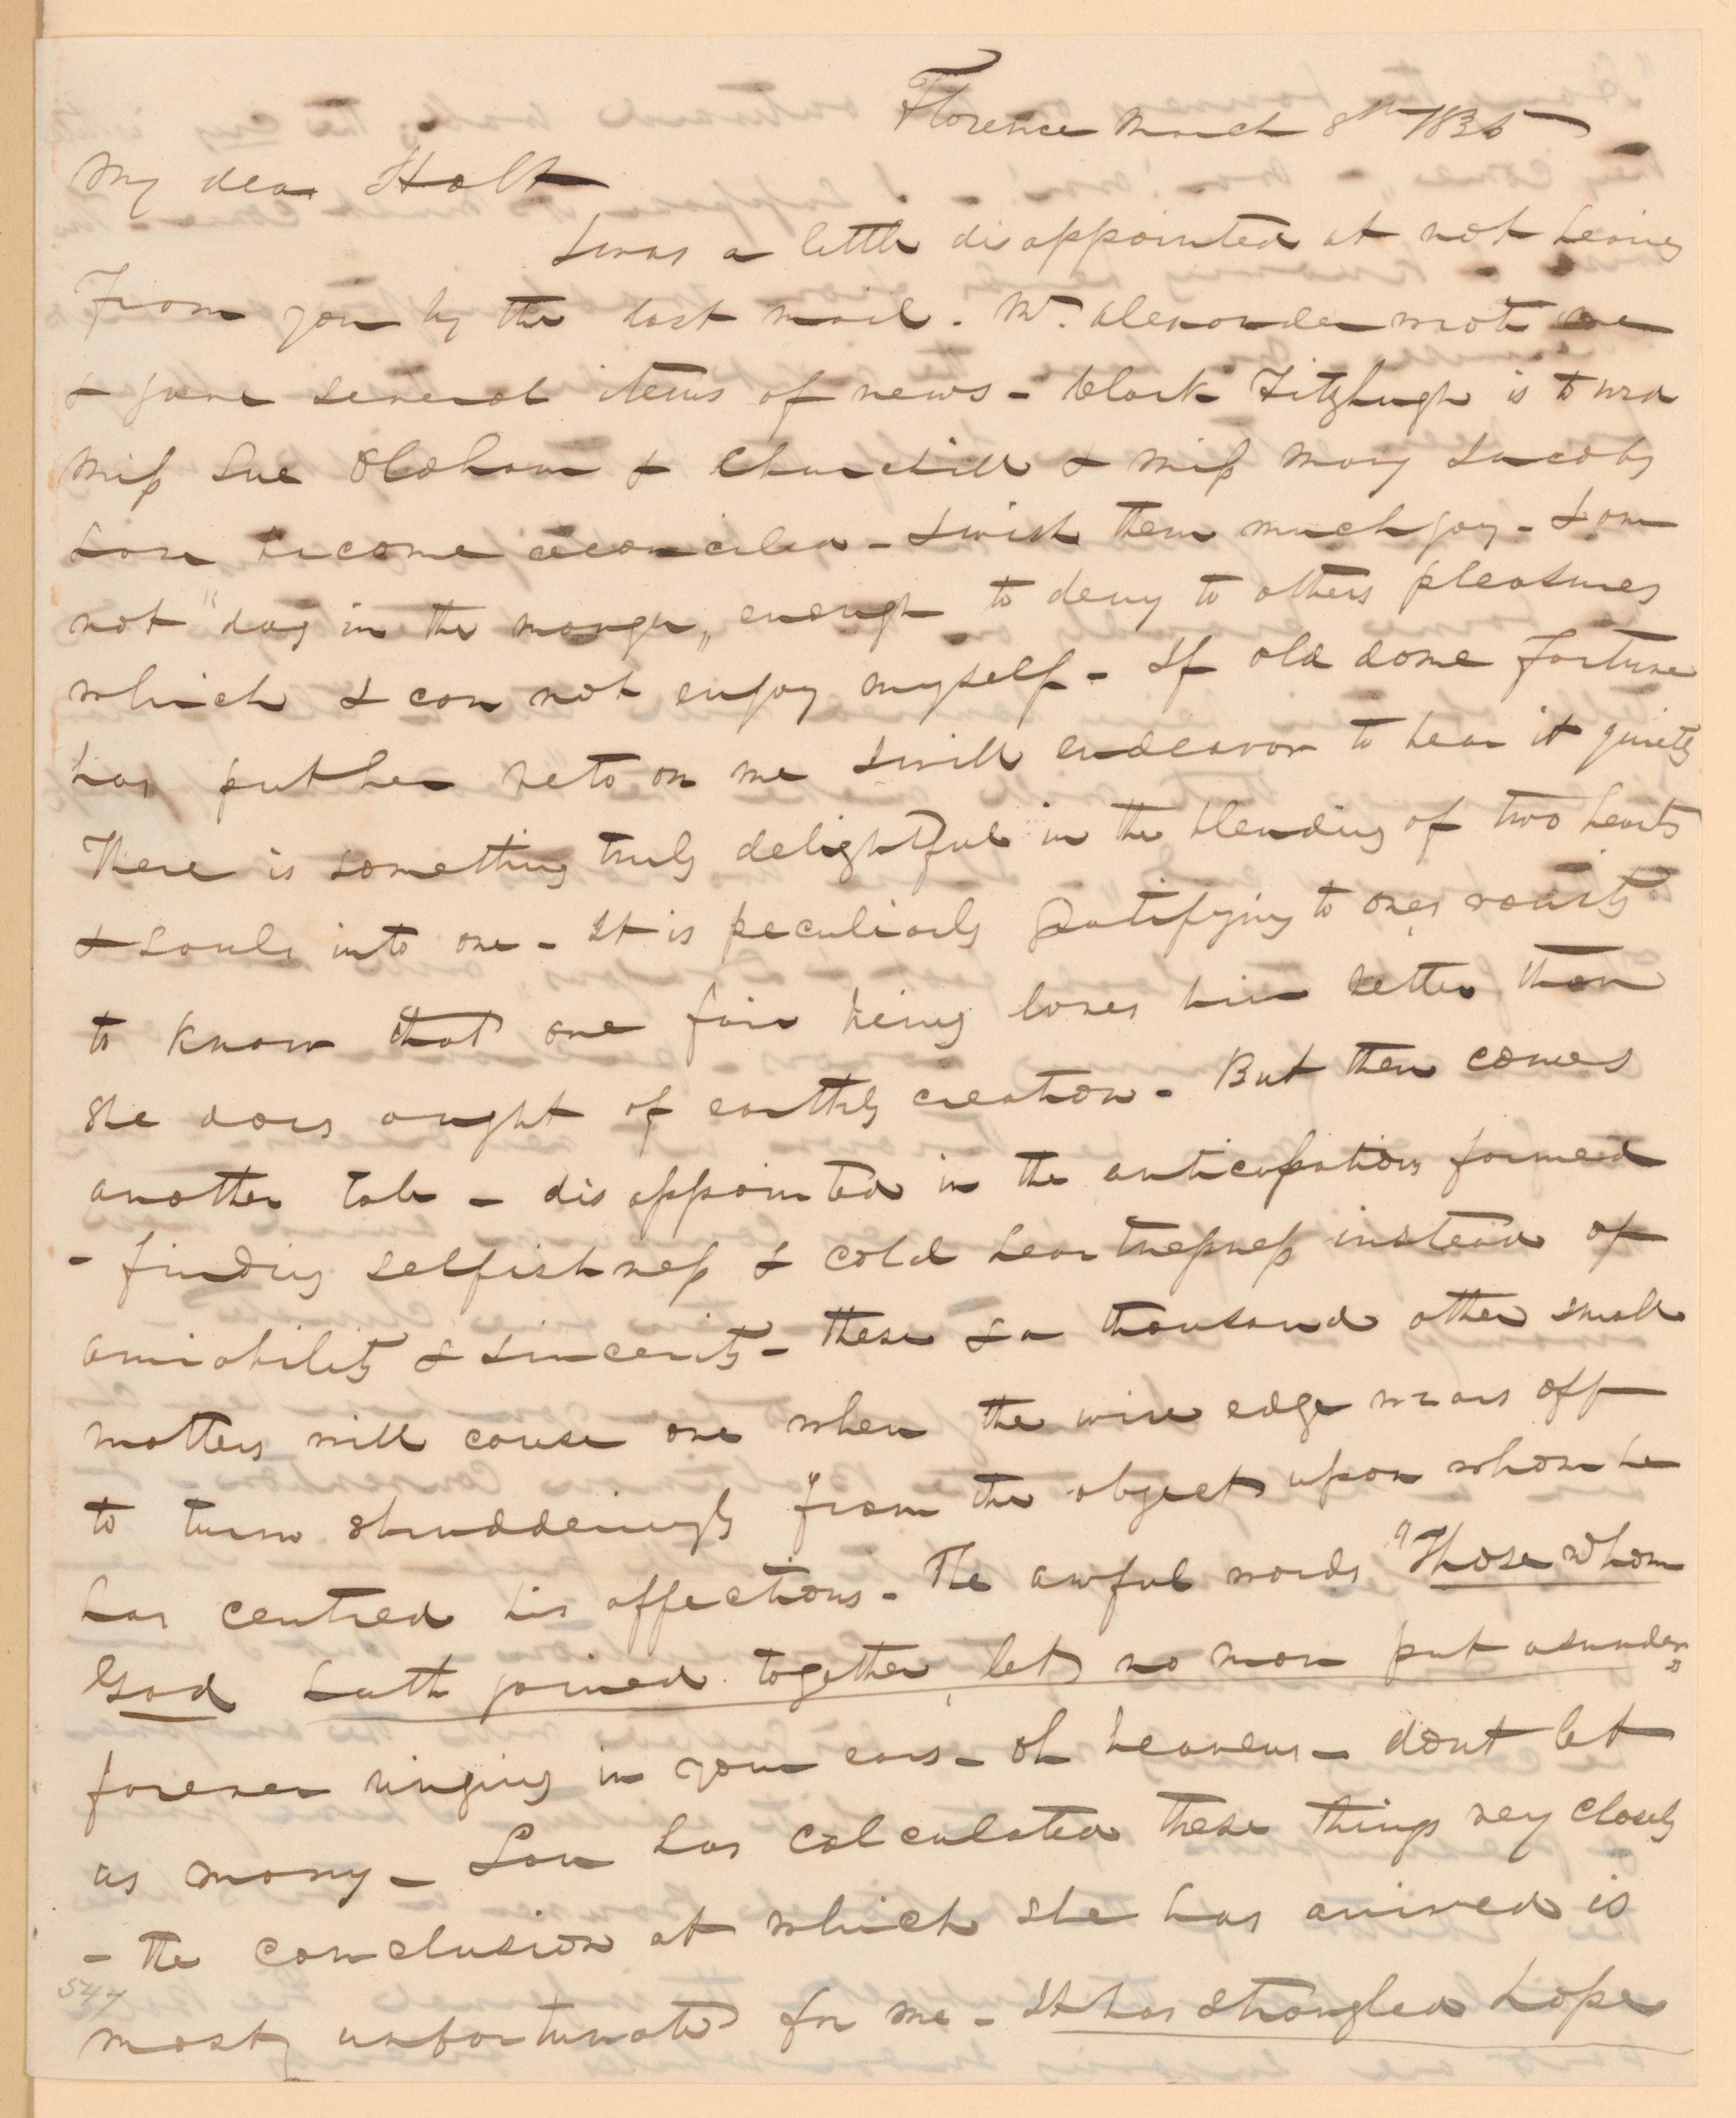 Florence March 8th 1835
My dear Holt
I was a little disappointed at not hearing
From you by the last mail. Mr. Alexander wrote me
& gave several items of news - Clark Fitzhugh is to wed
Miss Sue Oldham & Churchill & Miss Mary Jacobs
have become reconciled - I wish them much joy - I am
not "dog in the manger" enough to deny to others pleasures
which I can not enjoy myself - If old dame fortune
has put her veto on me I will endeavor to bear it quietly
There is something truly delightful in the blending of two hearts
& souls into one - It is peculiarly gratifying to ones vanity
to know that one fair being loves him better than
she does aught of earthly creation - But then comes
another tale - disappointed in the anticipations formed
- finding selfishness & cold heartlessness instead of
amiability & sincerity - these & a thousand other small
matters will cause one when the wire edge wears off
to turn shudderingly from the object upon whom he
has centred his affections - The awful words "Those whom
God hath joined together, let no man put asunder"
forever ringing in your ears - oh heavens - dont let
us marry - Lou has calculated these things very closely
- the conclusion at which she has arrived is
544
most unfortunate for me - It has strangled hope